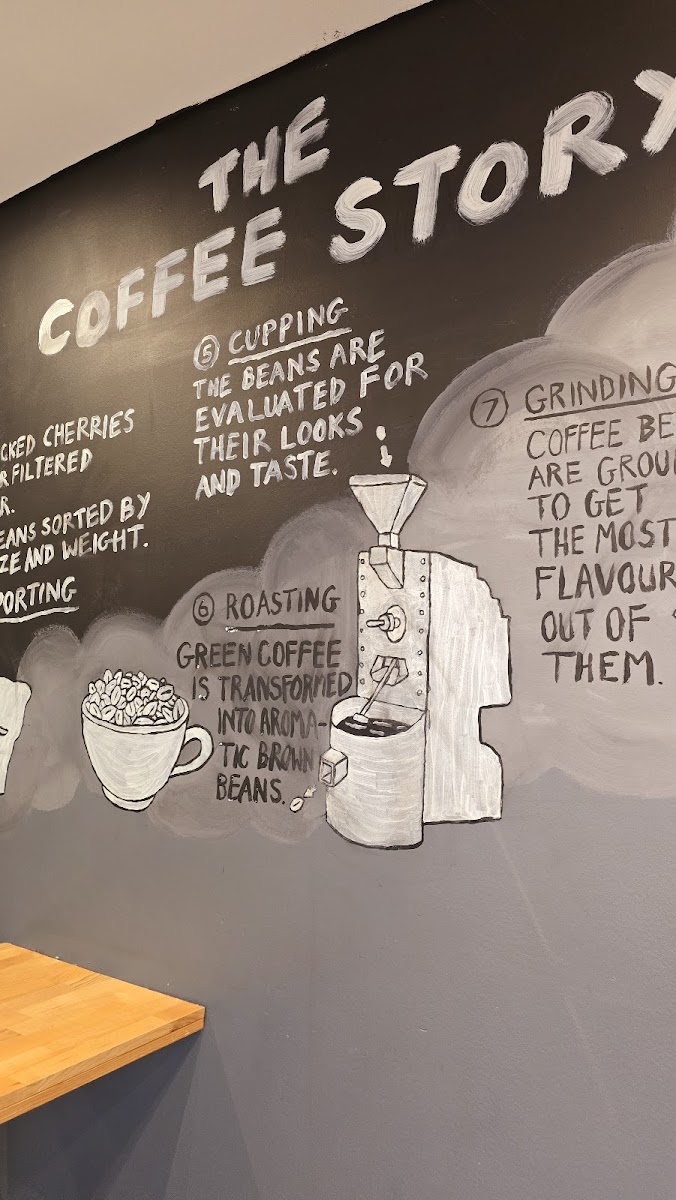 THE
COFFEE STORY
CKED CHERRIES
R FILTERED
R.
EANS SORTED BY
ZE AND WEIGHT.
PORTING
5 CUPPING
THE BEANS ARE
EVALUATED FOR
THEIR LOOKS
AND TASTE.
6 ROASTING
GREEN COFFEE
IS TRANSFORMED
INTO AROMA-
TIC BROWN
BEANS.
7 GRINDING
COFFEE BE
ARE GROU
TO GET
THE MOST
FLAVOUR
OUT OF
THEM.